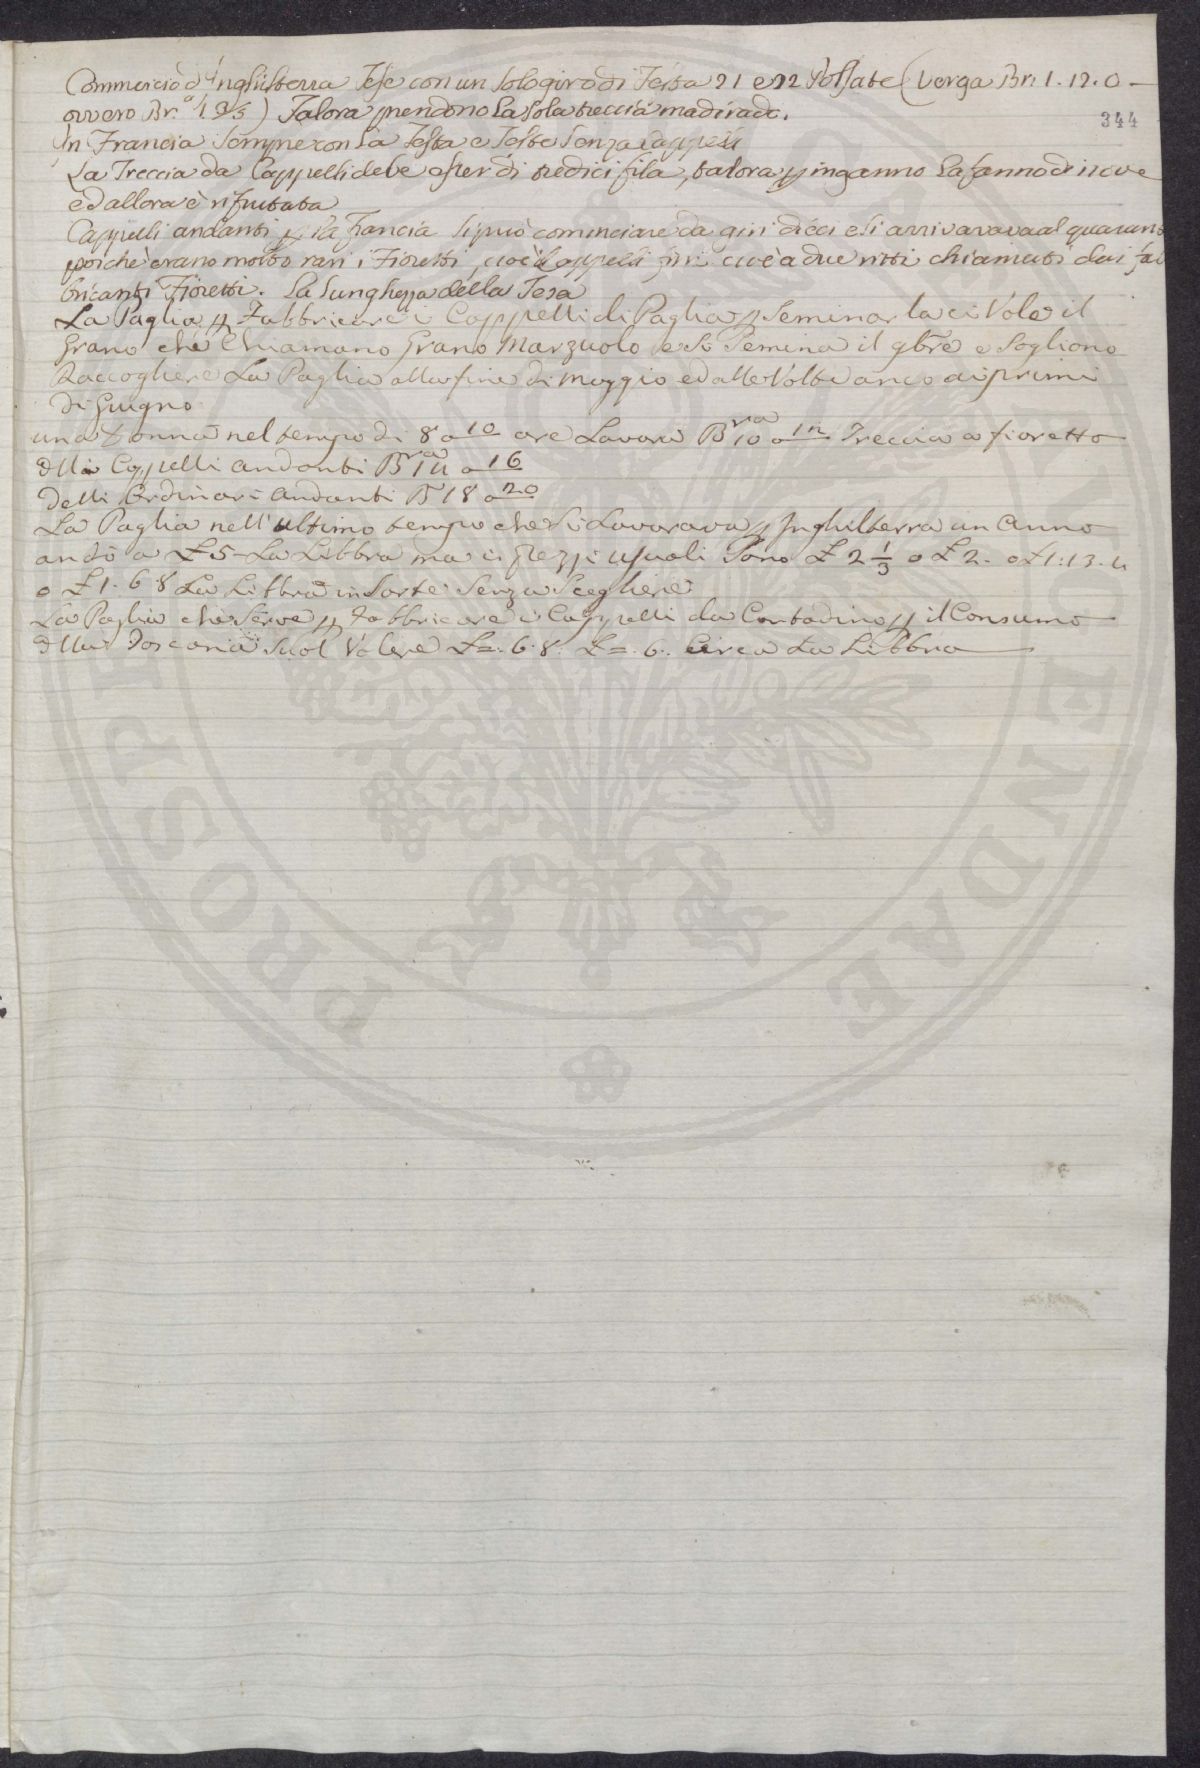 Commercio d'Inghilterra Tese con un solo giro di Testa 21 e 22 Possate (Verga Br. 1. 12. 0 —
344
ovvero Br.a 1 2/3) Talora prendono la sola treccia ma di rado.
In Francia sempre con la Testa e Teste senza cappelli
La Treccia da Cappelli debe esser di tredici fila, talora p inganno la fanno di nove
ed allora è rifiutata
Cappelli andanti p la Francia si può cominciare da giri dieci e si arrivava al quaranta
poiché erano molto rari i Fioretti, cioè Cappelli fini cioè a due ritti chiamati dai fab
bricanti Fioretti. La lunghezza della Tesa
La Paglia p Fabbricare i Cappelli di Paglia p Seminarla ci Vole il
Grano che Chiamano Grano Marzuolo e Si Semina il 9bre e Sogliono
Raccogliere La Paglia alla fine di Maggio ed alle Volte anco ai primi
di Giugno
una Donna nel tempo di 8 a 10 ore Lavora Bra 10 a 12 Treccia a fioretto
dlli Cappelli andanti Bra 14 a 16
Delli Ordinari andanti B 18 a 20
La Paglia nell'ultimo tempo che Si Lavorava p Inghilterra un anno
andò a £ 5 La Libbra ma i prezzi usuali Sono £ 2 1/3 o £ 2. o £ 1:13. 4
o £ 1. 6 8 La Libbra in Sorte Senza Scegliere
La Paglia che Serve p Fabbricare i Cappelli da Contadino p il Consumo
dlla Toscana Suol Valere £ =. 6. 8. £ =. 6. Circa La Libbra
PROSPI
TUENDAE